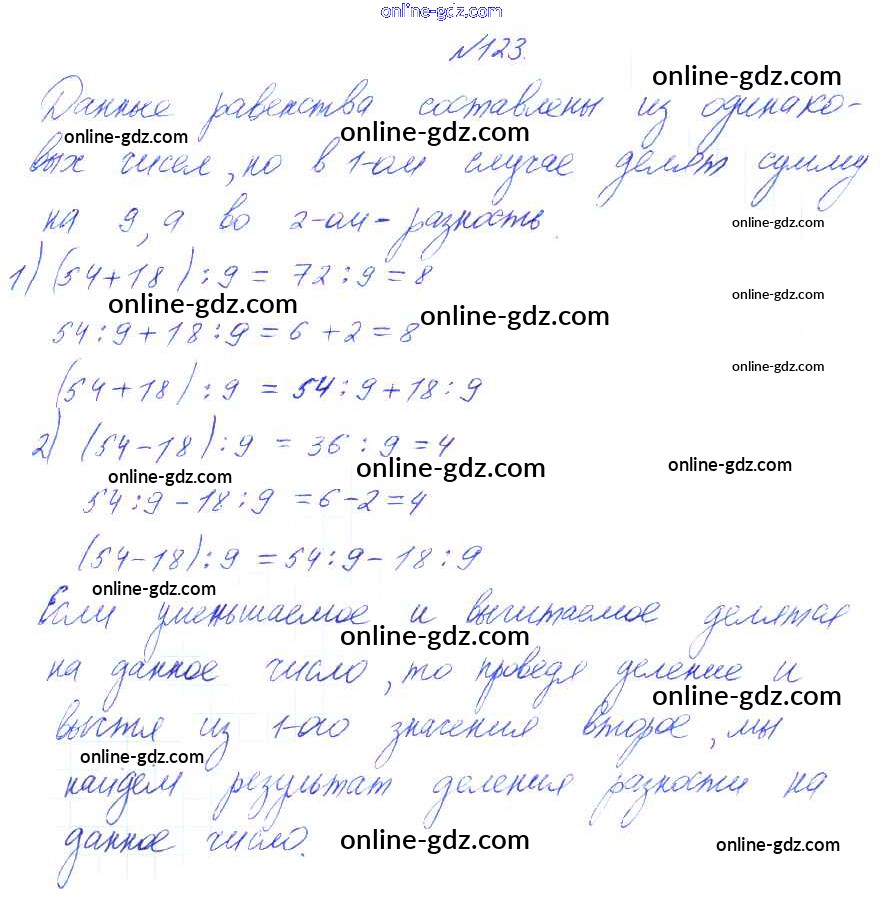 online-gdz.com
№123.
online-gdz.com
Данные равенства составлены из одинако-
online-gdz.com online-gdz.com
вых чисел, но в 1-ом случае делят сумму
на 9, а во 2-ом - разность.
online-gdz.com
1) (54+18):9 = 72:9=8
online-gdz.com
online-gdz.com online-gdz.com
54:9+18:9=6+2=8
online-gdz.com
(54+18):9 = 54:9+18:9
2) (54-18):9 = 36:9=4
online-gdz.com online-gdz.com online-gdz.com
54:9-18:9=6-2=4
(54-18):9=54:9-18:9
online-gdz.com
Если уменьшаемое и вычитаемое делятся
online-gdz.com
на данное число, то проведя деление и
online-gdz.com
вычтя из 1-ого значения второе, мы
online-gdz.com
найдём результат деления разности на
данное число.
online-gdz.com online-gdz.com